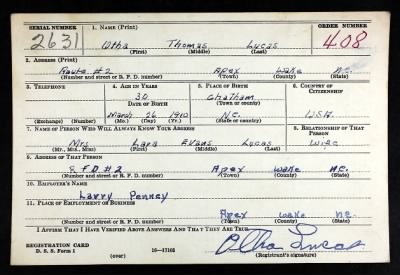 SERIAL NUMBER 1. NAME (Print) ORDER NUMBER
2631 Otha Thomas Lucas 408
(First) (Middle) (Last)
2. ADDRESS (Print)
Route #2 Apex Wake N.C.
(Number and street or R. F. D. number) (Town) (County) (State)
3. TELEPHONE 4. AGE IN YEARS 5. PLACE OF BIRTH 6. COUNTRY OF CITIZENSHIP
30 Chatham
DATE OF BIRTH (Town or county)
March 26 1910 N.C. USA.
(Exchange) (Number) (Mo.) (Day) (Yr.) (State or country)
7. NAME OF PERSON WHO WILL ALWAYS KNOW YOUR ADDRESS 8. RELATIONSHIP OF THAT PERSON
Mrs Lara Evans Lucas Wife
(Mr., Mrs., Miss) (First) (Middle) (Last)
9. ADDRESS OF THAT PERSON
RFD #2 Apex Wake N.C.
(Number and street or R. F. D. number) (Town) (County) (State)
10. EMPLOYER'S NAME
Larry Penney
11. PLACE OF EMPLOYMENT OR BUSINESS
Apex Wake NC
(Number and street or R. F. D. number) (Town) (County) (State)
I AFFIRM THAT I HAVE VERIFIED ABOVE ANSWERS AND THAT THEY ARE TRUE.
Otha Lucas
REGISTRATION CARD
D. S. S. Form 1 (over) 16—17105 (Registrant's signature)